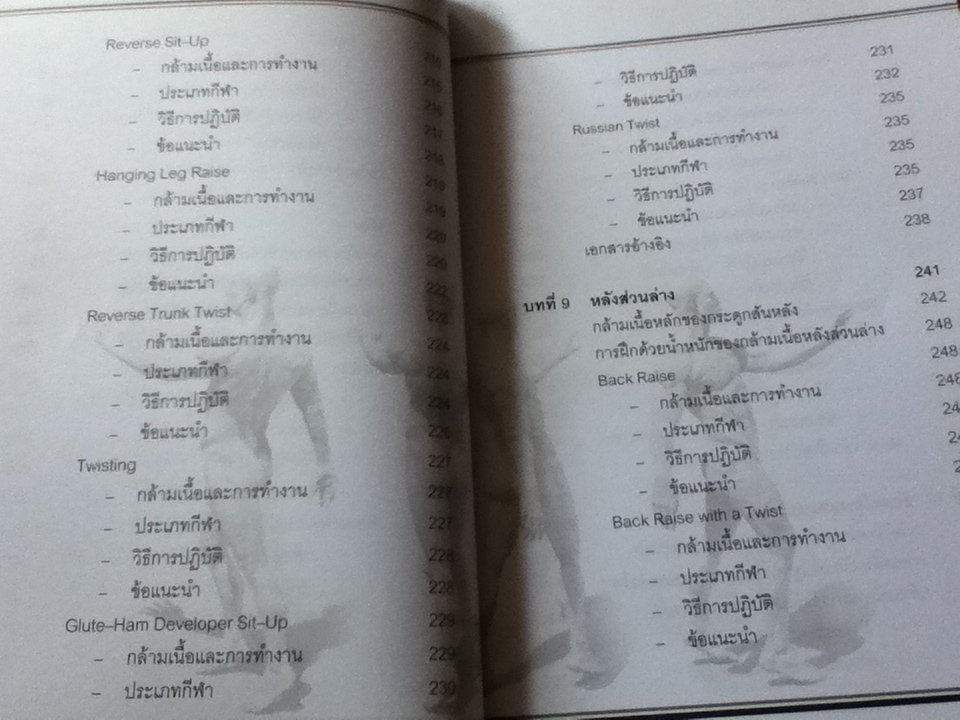 Reverse Sit–Up 216
– กล้ามเนื้อและการทำงาน
– ประเภทกีฬา 216
– วิธีการปฏิบัติ 217
– ข้อแนะนำ 218
Hanging Leg Raise 219
– กล้ามเนื้อและการทำงาน 219
– ประเภทกีฬา 220
– วิธีการปฏิบัติ 220
– ข้อแนะนำ 222
Reverse Trunk Twist 223
– กล้ามเนื้อและการทำงาน 224
– ประเภทกีฬา 224
– วิธีการปฏิบัติ 224
– ข้อแนะนำ 226
Twisting 227
– กล้ามเนื้อและการทำงาน 227
– ประเภทกีฬา 227
– วิธีการปฏิบัติ 228
– ข้อแนะนำ 228
Glute–Ham Developer Sit–Up 229
– กล้ามเนื้อและการทำงาน 229
– ประเภทกีฬา 230
– วิธีการปฏิบัติ 231
– ข้อแนะนำ 232
Russian Twist 235
– กล้ามเนื้อและการทำงาน 235
– ประเภทกีฬา 235
– วิธีการปฏิบัติ 235
– ข้อแนะนำ 237
เอกสารอ้างอิง 238
บทที่ 9 หลังส่วนล่าง 241
กล้ามเนื้อหลักของกระดูกสันหลัง 242
การฝึกด้วยน้ำหนักของกล้ามเนื้อหลังส่วนล่าง 248
Back Raise 248
– กล้ามเนื้อและการทำงาน 248
– ประเภทกีฬา
– วิธีการปฏิบัติ
– ข้อแนะนำ
Back Raise with a Twist
– กล้ามเนื้อและการทำงาน
– ประเภทกีฬา
– วิธีการปฏิบัติ
– ข้อแนะนำ